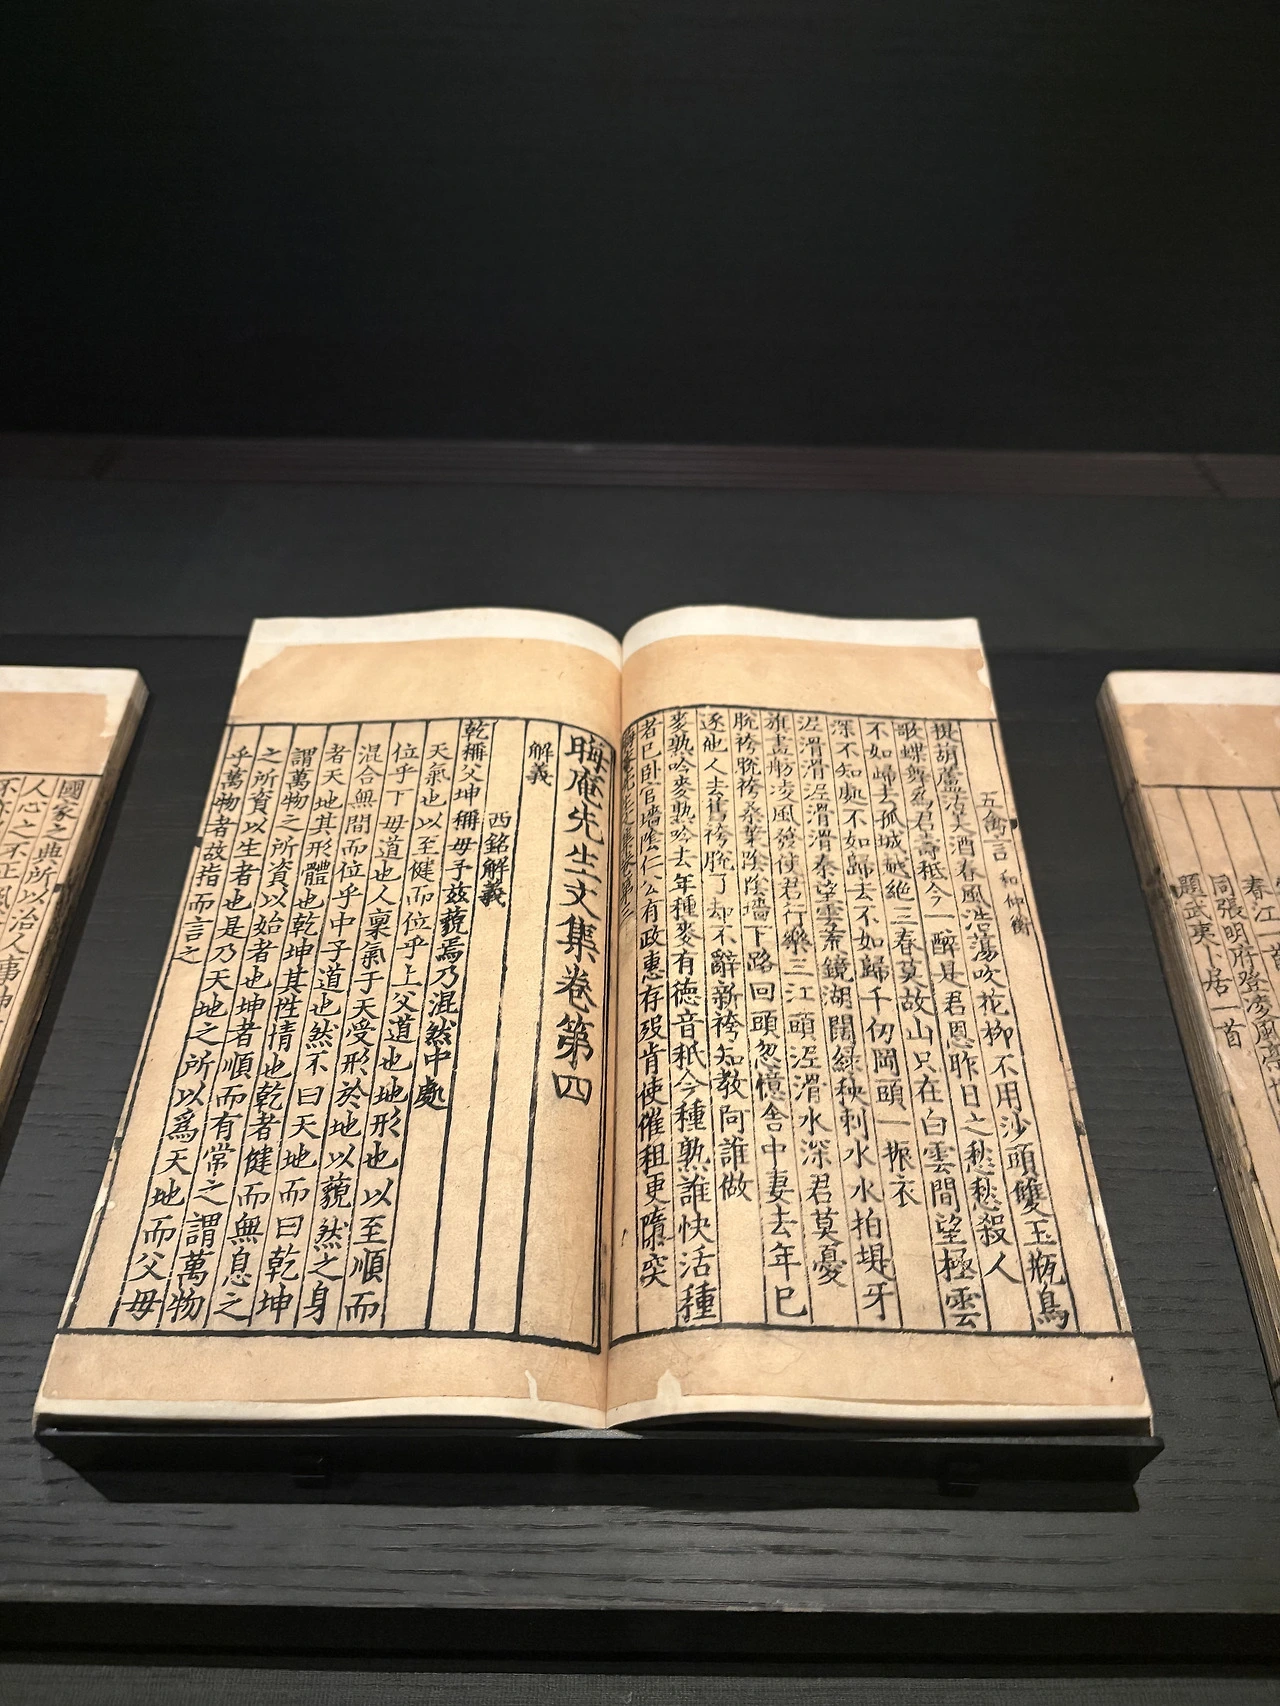 春江一首
同張明府登凌風
題武夷卜居一首
五禽言 和仲衡
提葫蘆沽美酒春風浩蕩吹花柳不用沙頭雙玉瓶鳥
歌蝶舞爲君壽秪今一醉是君恩昨日之愁愁殺人
不如歸去孤城越絕三春莫故山只在白雲間望極雲
深不知處不如歸去不如歸千仞岡頭一振衣
泥滑滑泥滑滑秦望雲荒鏡湖闊綠秧刺水水拍堤牙
旗畫舫凌風發使君行樂三江頭泥滑水深君莫憂
脫袴脫袴桑葉陰陰墻下路回頭忽憶舍中妻去年已
逐他人去舊袴脫了却不辭新袴知教阿誰做
麥熟吟麥熟吟去年種麥有德音秪今種熟誰快活種
者已臥官墻陰仁公有政惠存歿肯使催租更隳突
晦庵先生文集卷第三
晦庵先生文集卷第四
解義
西銘解義
乾稱父坤稱母予茲藐焉乃混然中處
天氣也以至健而位乎上父道也地形也以至順而
位乎下母道也人稟氣于天受形於地以藐然之身
混合無間而位乎中子道也然不曰天地而曰乾坤
者天地其形體也乾坤其性情也乾者健而無息之
謂萬物之所資以始者也坤者順而有常之謂萬物
之所資以生者也是乃天地之所以爲天地而父母
乎萬物者故指而言之
國家之典所以治人事神
人心之不正風